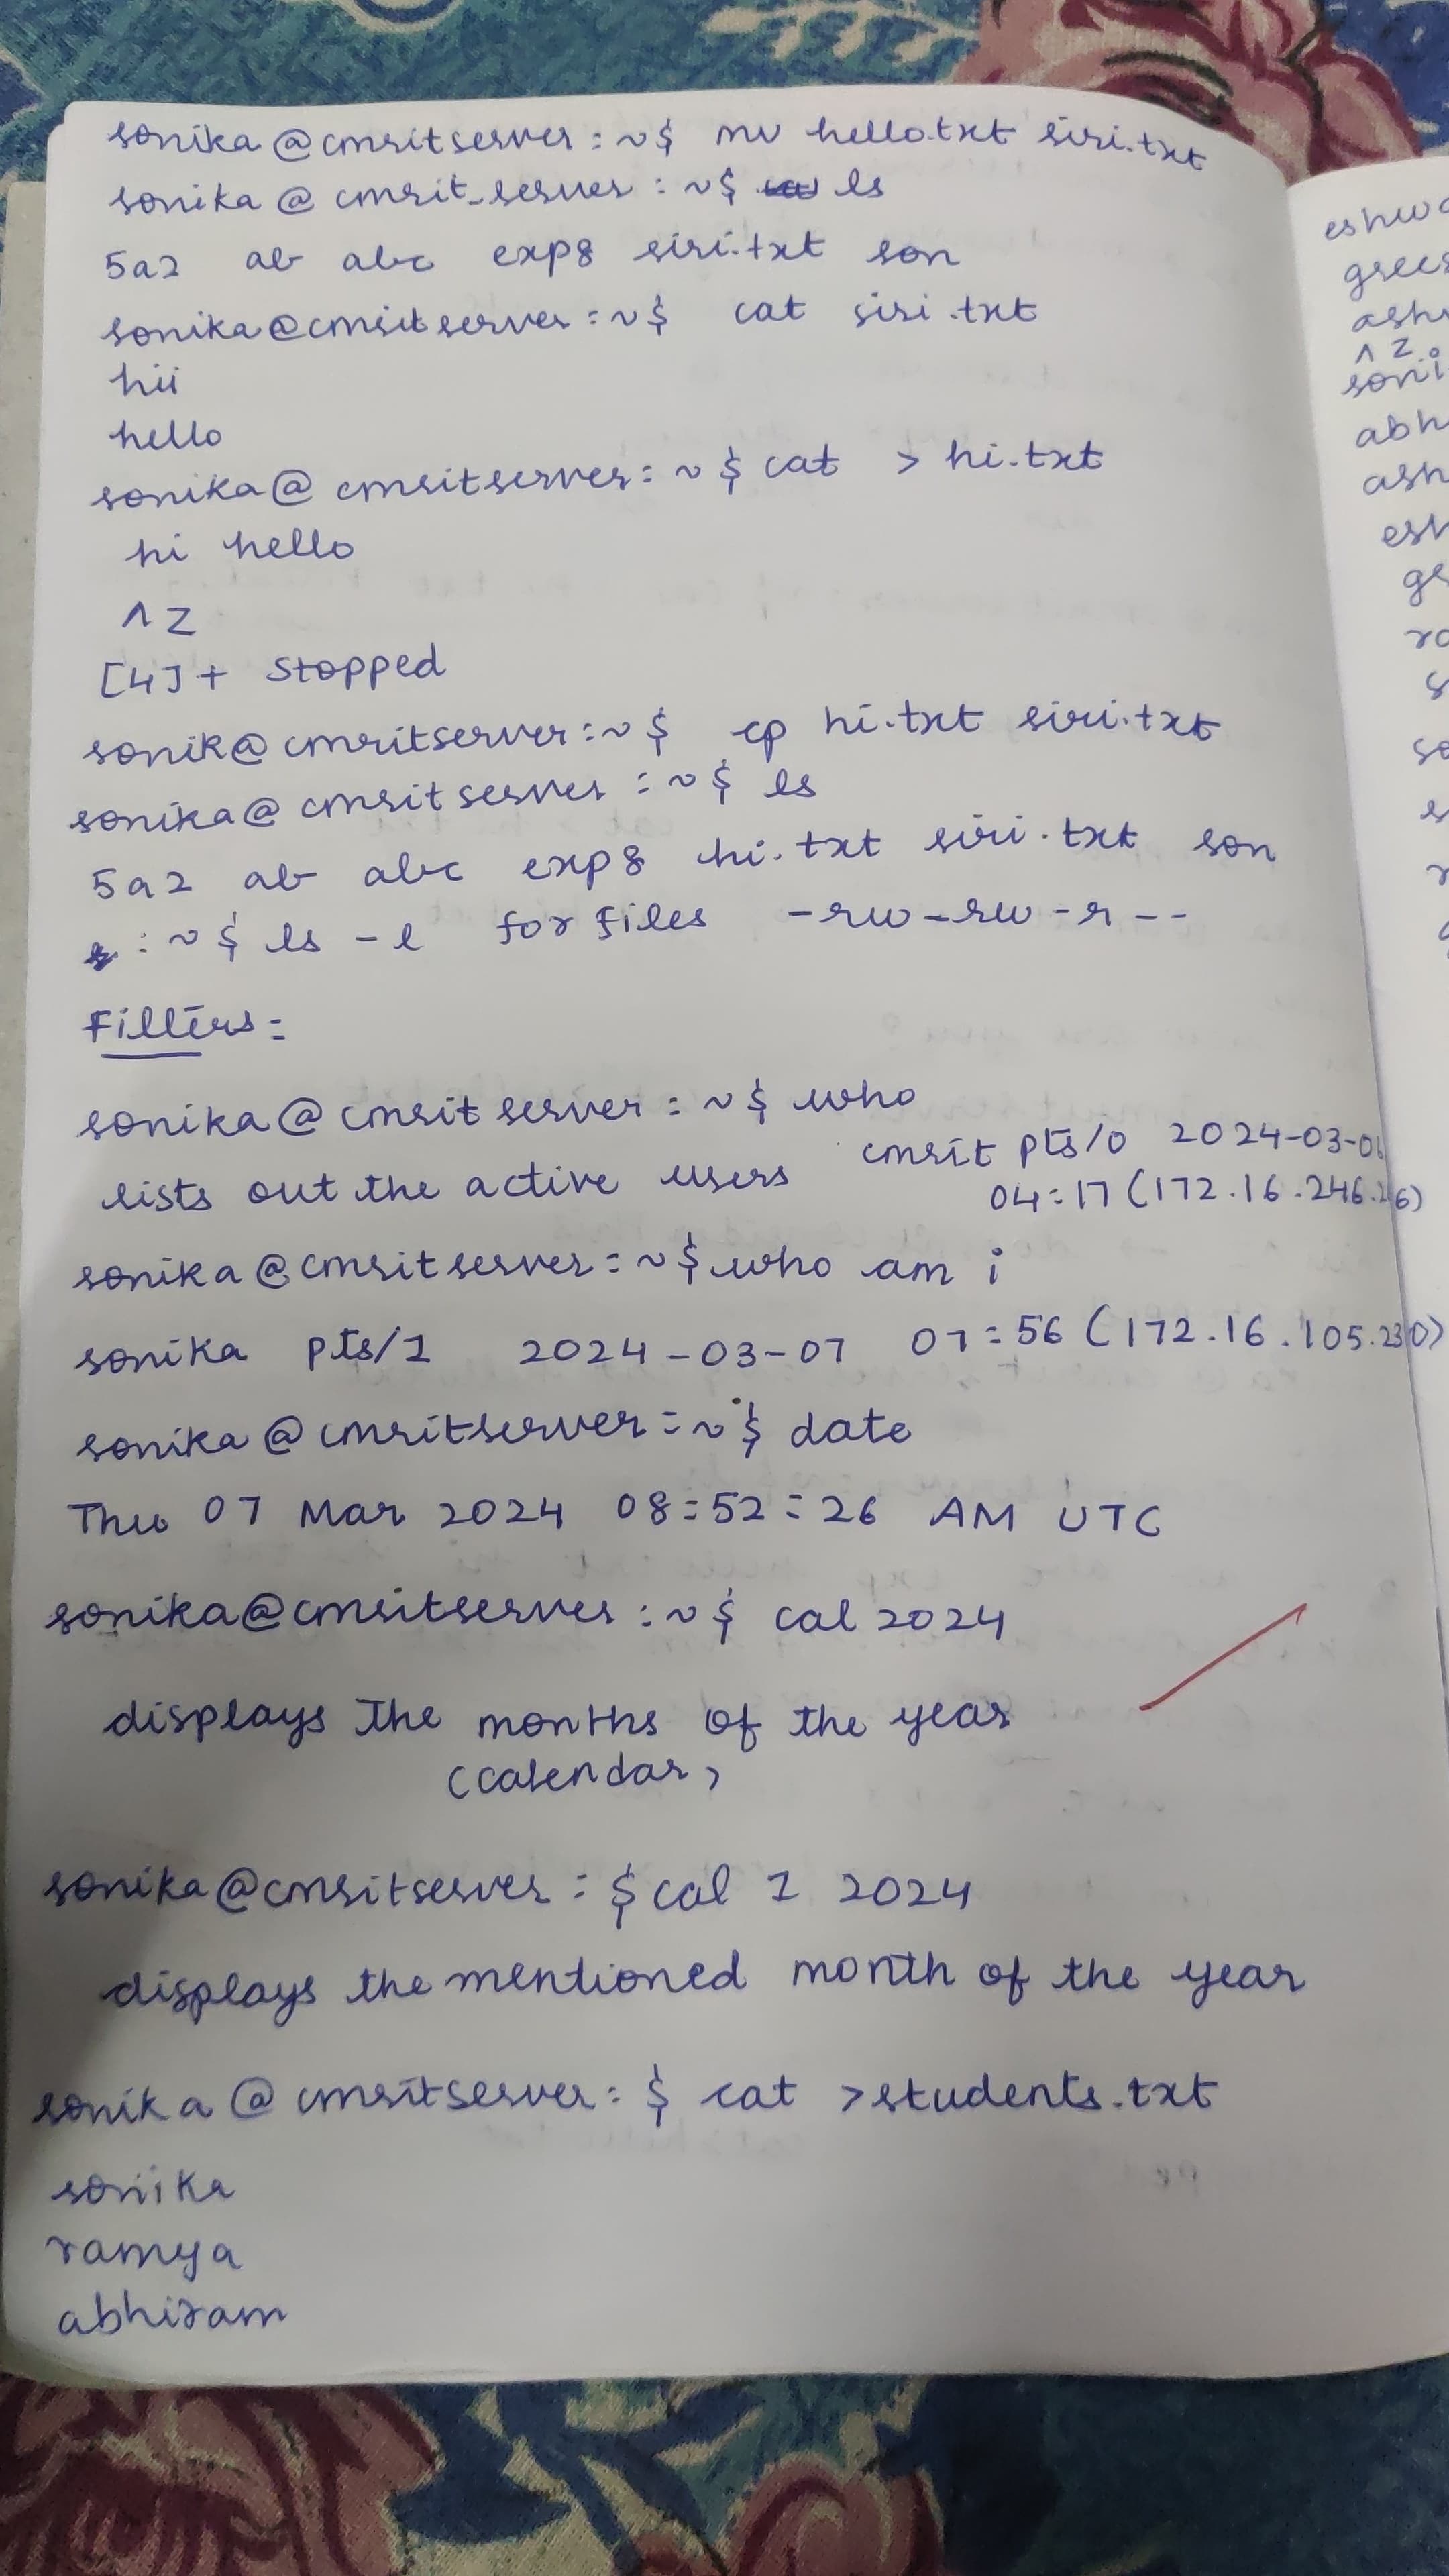 sonika@cmritserver:~$ mv hello.txt siri.txt
sonika@cmrit_server:~$ ls
5a2 ab abc exp8 siri.txt son
sonika@cmritserver:~$ cat siri.txt
hii
hello
sonika@cmritserver:~$ cat > hi.txt
hi hello
^Z
[4]+ Stopped
sonik@cmritserver:~$ cp hi.txt siri.txt
sonika@cmritserver:~$ ls
5a2 ab abc exp8 hi.txt siri.txt son
:~$ ls -l for files -rw-rw-r--
Fillers:
sonika@cmritserver:~$ who
lists out the active users cmrit pts/0 2024-03-
04:17 (172.16.246.
sonika@cmritserver:~$ who am i
sonika pts/1 2024-03-07 07:56 (172.16.105.230)
sonika@cmritserver:~$ date
Thu 07 Mar 2024 08:52:26 AM UTC
sonika@cmritserver:~$ cal 2024
displays the months of the year
(calendar)
sonika@cmritserver:$ cal 1 2024
displays the mentioned month of the year
sonika@cmritserver:$ cat >students.txt
sonika
ramya
abhiram